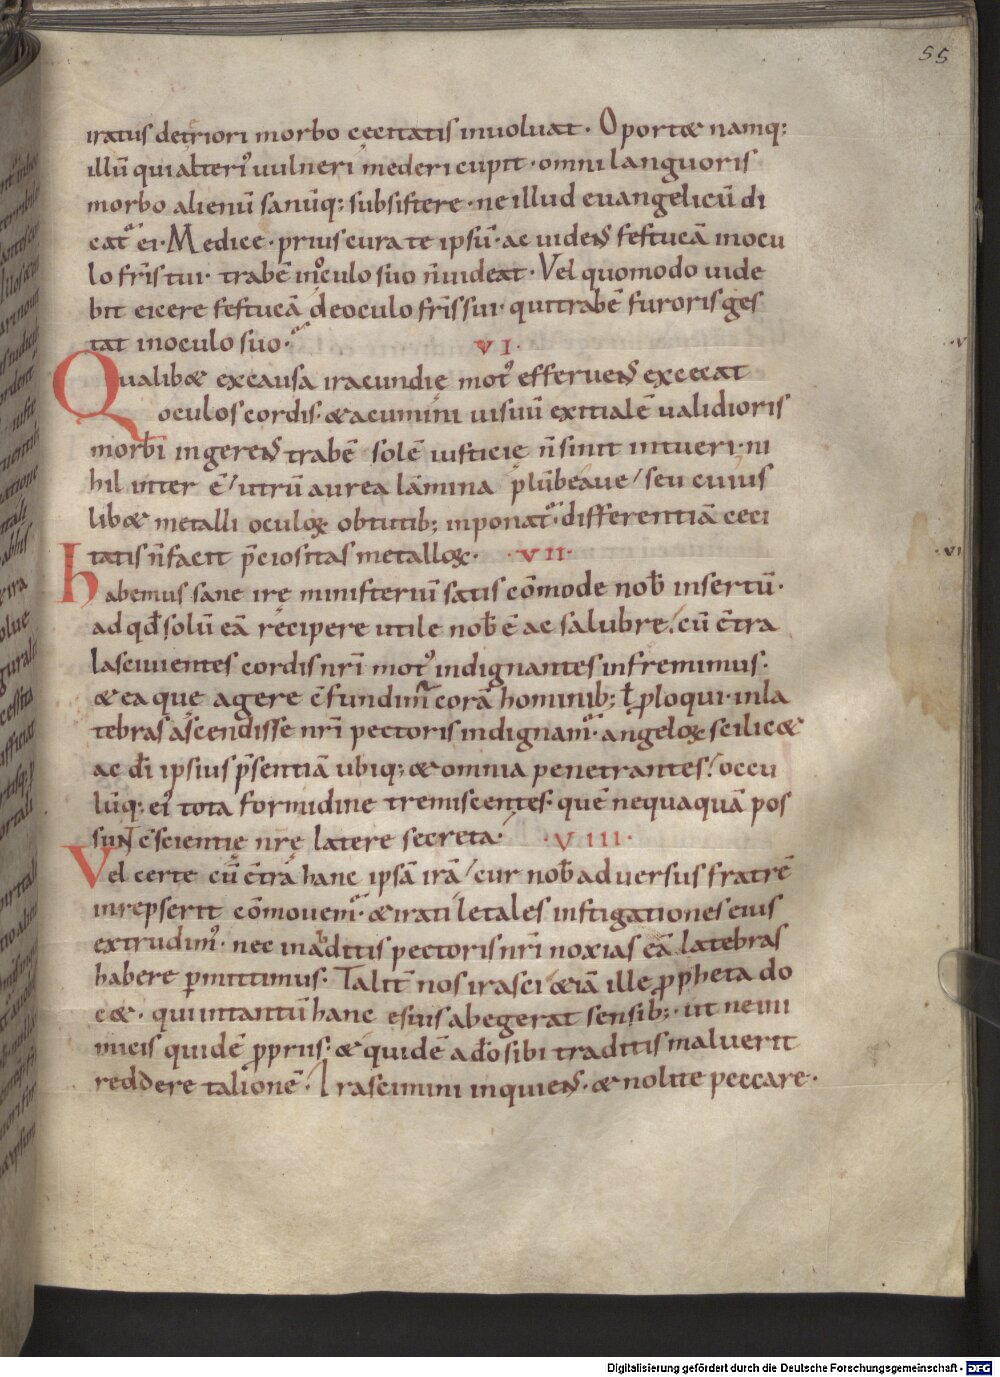 55
iratus deteriori morbo cęcitatis inuoluat. Oportet namq;
illū qui alteri᷒ uulneri mederi cupit. omni languoris
morbo alienū sanūq; subsistere. ne illud euangelicū di
cat᷑ ei. Medice. prius cura te ipsū. ac uidens festucā in ocu
lo fr̄is tui. trabē in oculo suo n̄ uideat. Vel quomodo uide
bit eicere festucā de oculo fr̄is sui. qui trabē furoris ges
tat in oculo suo. VI.
Qualibet ex causa iracundię mot᷒ efferuens excęcat
oculos cordis. et acumini uisuū exitialē ualidioris
morbi ingerens trabē solē iusticię n̄ sinit intueri. ni
hil inter ē / utrū aurea lāmina plūbeaue / seu cuius
libet metalli oculoꝝ obtutib; inponat᷑. differentiā ceci
tatis n̄ facit p̄ciositas metalloꝝ. VII.
habemus sane irę ministeriū satis cōmode nob̄ insertū.
ad qd̄ solū eā recipere utile nob̄ ē ac salubre. cū c̄tra
lasciuientes cordis nr̄i mot᷒ indignantes infremimus.
et ea quę agere c̄fundim᷒ corā hominib; ł ꝓloqui. in la
tebras ascendisse nr̄i pectoris indignam᷑. angeloꝝ scilicet
ac dī ipsius p̄sentiā ubiq; et omnia penetrantes. occu
lūq; ei᷒ tota formidine tremiscentes. quē nequaquā pos
sunt c̄scientię nr̄ę latere secreta. VIII.
Vel certe cū c̄tra hanc ipsā irā / cur nob̄ aduersus fratrē
inrepserit cōmouem᷑. et irati letales instigationes eius
extrudim᷒. nec in abditis pectoris nr̄i noxias eā latebras
habere ꝑmittimus. Talit̄ nos irasci etiā ille ꝓpheta do
cet. qui intantū hanc e suis abegerat sensib;. ut ne ini
micis quidē ꝓpriis. et quidē a dō sibi traditis maluerit
reddere talionē. Irascimini inquiens. et nolite peccare.
.V
.VI
Digitalisierung gefördert durch die Deutsche Forschungsgemeinschaft - DFG